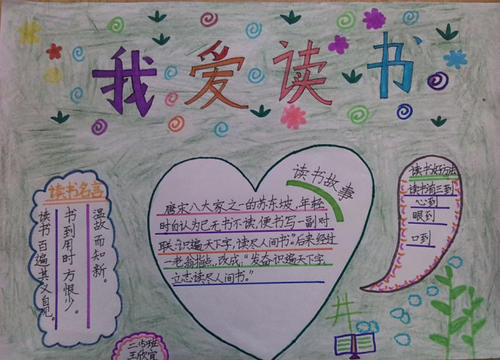 我爱读书
读书名言
温故而知新。
书到用时方恨少。
读书百遍其义自见。
读书故事
唐宋八大家之一的苏东坡,年轻
时自认为已无书不读,便书写一副对
联:“识遍天下字,读尽人间书”后来经过
一老翁指点,改成:“发奋识遍天下字,
立志读尽人间书。”
读书好方法
读书有三到
心到
眼到
口到
王欣宜